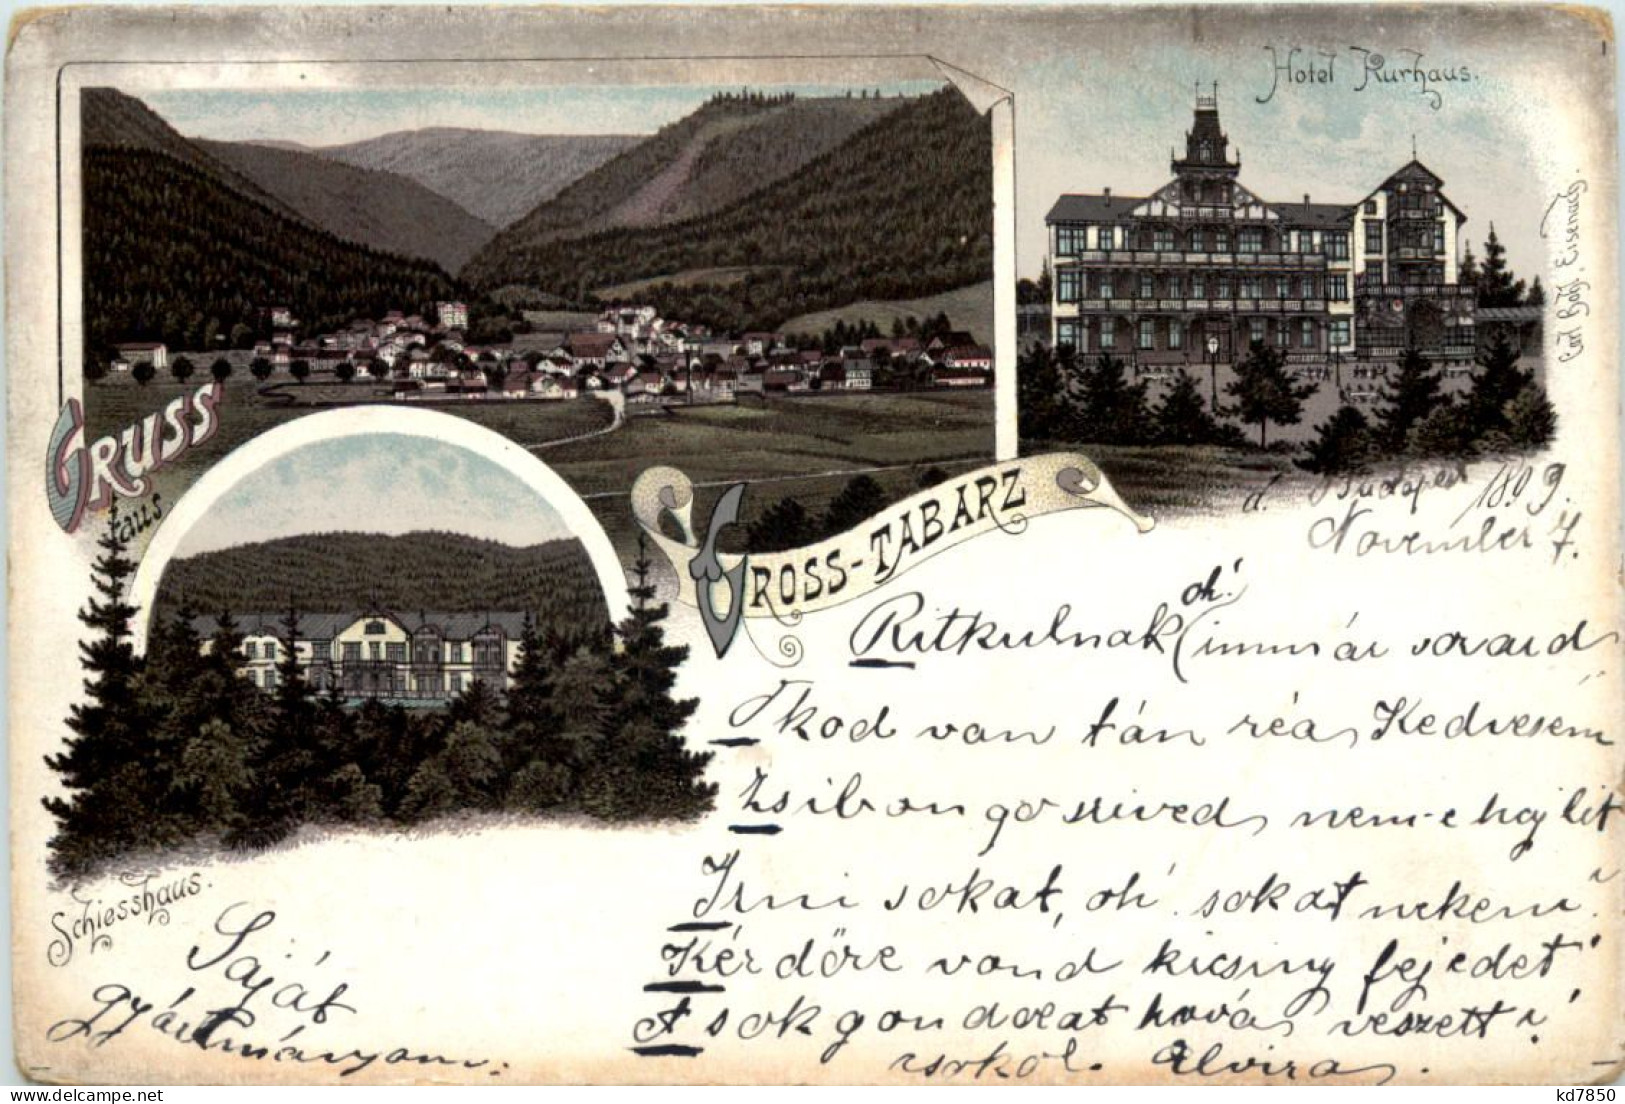 Hotel Kurhaus.
Carl Bög, Eisenach.
GRUSS
aus
GROSS-TABARZ
Schiesshaus.
d. Budapest 1899.
November 7.
oh!
Ritkulnak (immár soraid
Okod van tán reá Kedvesem
Zsibongo szived nem-e hajlit
Irni sokat, oh! sokat nekem!
Kérdőre vond kicsiny fejedet
A sok gondolat hová veszett!
csókol. Elvira.
Saját
gyártmányom.
kd7850